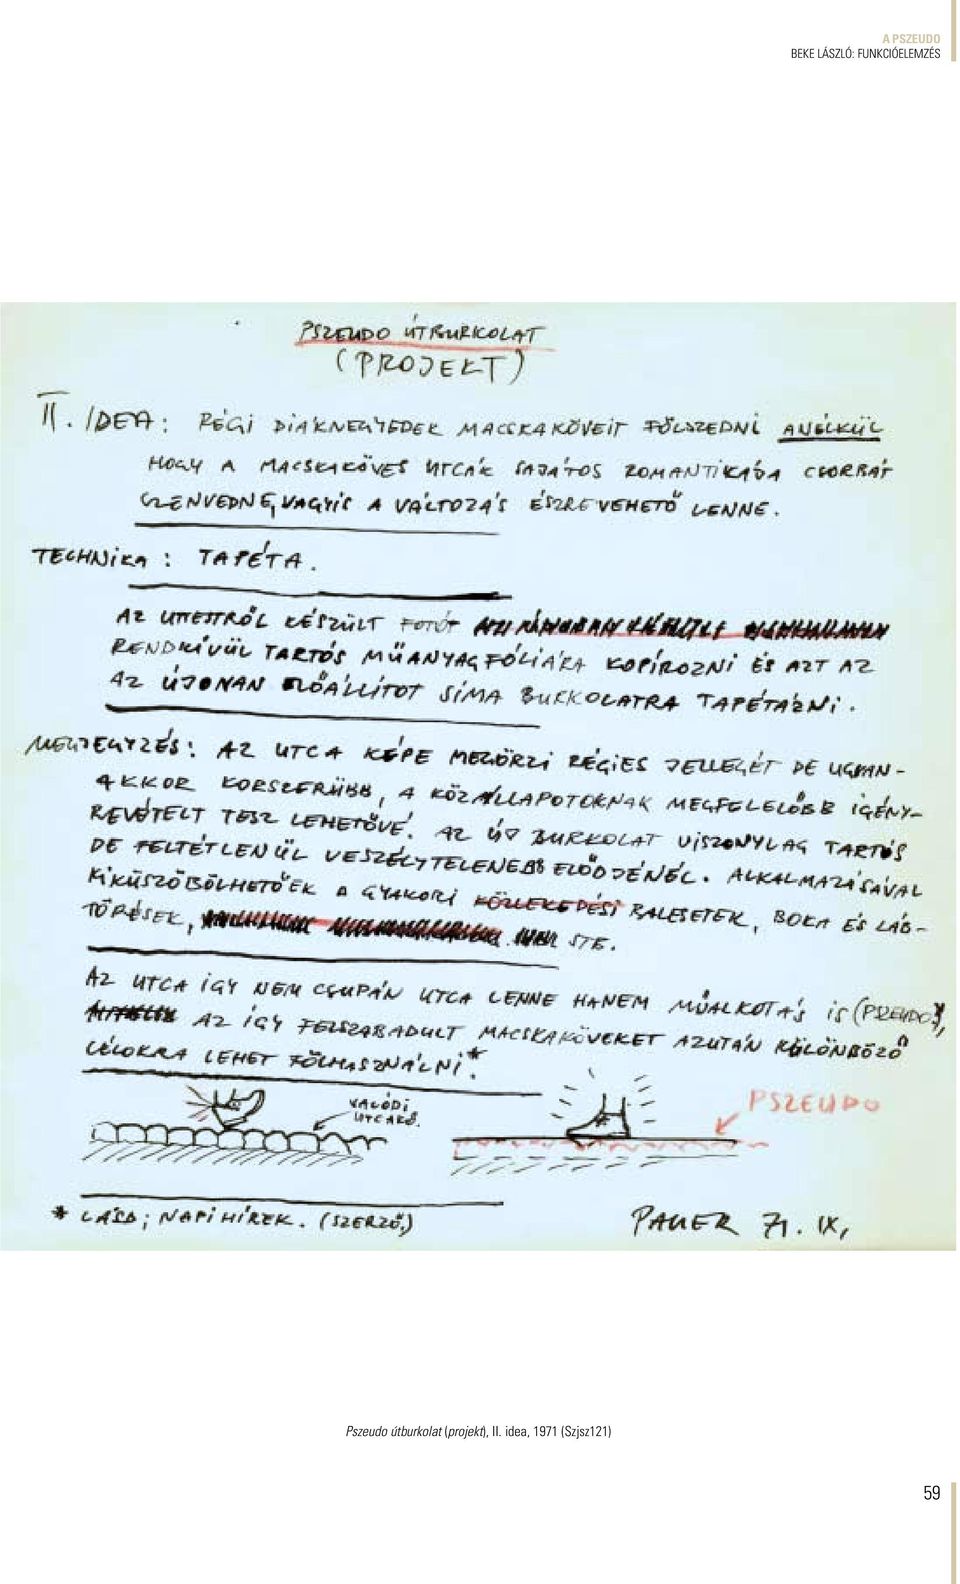 A PSZEUDO
BEKE LÁSZLÓ: FUNKCIÓELEMZÉS
PSZEUDO ÚTBURKOLAT
(PROJEKT)
II. IDEA: RÉGI DIÁKNEGYEDEK MACSKAKÖVEIT FÖLSZEDNI ANÉLKÜL
HOGY A MACSKAKÖVES UTCÁK SAJÁTOS ROMANTIKÁJA CSORBÁT
SZENVEDNE, VAGYIS A VÁLTOZÁS ÉSZREVEHETŐ LENNE.
TECHNIKA: TAPÉTA.
AZ UTTESTRŐL KÉSZÜLT FOTÓT
RENDKÍVÜL TARTÓS MŰANYAGFÓLIÁRA KOPÍROZNI ÉS AZT AZ
AZ ÚJONAN ELŐÁLLÍTOT SÍMA BURKOLATRA TAPÉTÁZNI.
MEGJEGYZÉS: AZ UTCA KÉPE MEGŐRZI RÉGIES JELLEGÉT DE UGYAN-
AKKOR KORSZERÜBB, A KÖZÁLLAPOTOKNAK MEGFELELŐBB IGÉNY-
BEVÉTELT TESZ LEHETŐVÉ. AZ ÚJ BURKOLAT VISZONYLAG TARTÓS
DE FELTÉTLENÜL VESZÉLYTELENEBB ELŐDJÉNÉL. ALKALMAZÁSÁVAL
KIKÜSZÖBÖLHETŐEK A GYAKORI KÖZLEKEDÉSI BALESETEK, BOKA ÉS LÁB-
TÖRÉSEK, STB.
AZ UTCA IGY NEM CSUPÁN UTCA LENNE HANEM MŰALKOTÁS IS (PSZEUDO),
AZ IGY FELSZABADULT MACSKAKÖVEKET AZUTÁN KÜLÖNBÖZŐ
CÉLOKRA LEHET FÖLHASZNÁLNI*
VALÓDI
UTCAKŐ.
PSZEUDO
* LÁSD; NAPI HÍREK. (SZERZŐ.)
PAUER 71. IX,
Pszeudo útburkolat (projekt), II. idea, 1971 (Szjsz121)
59